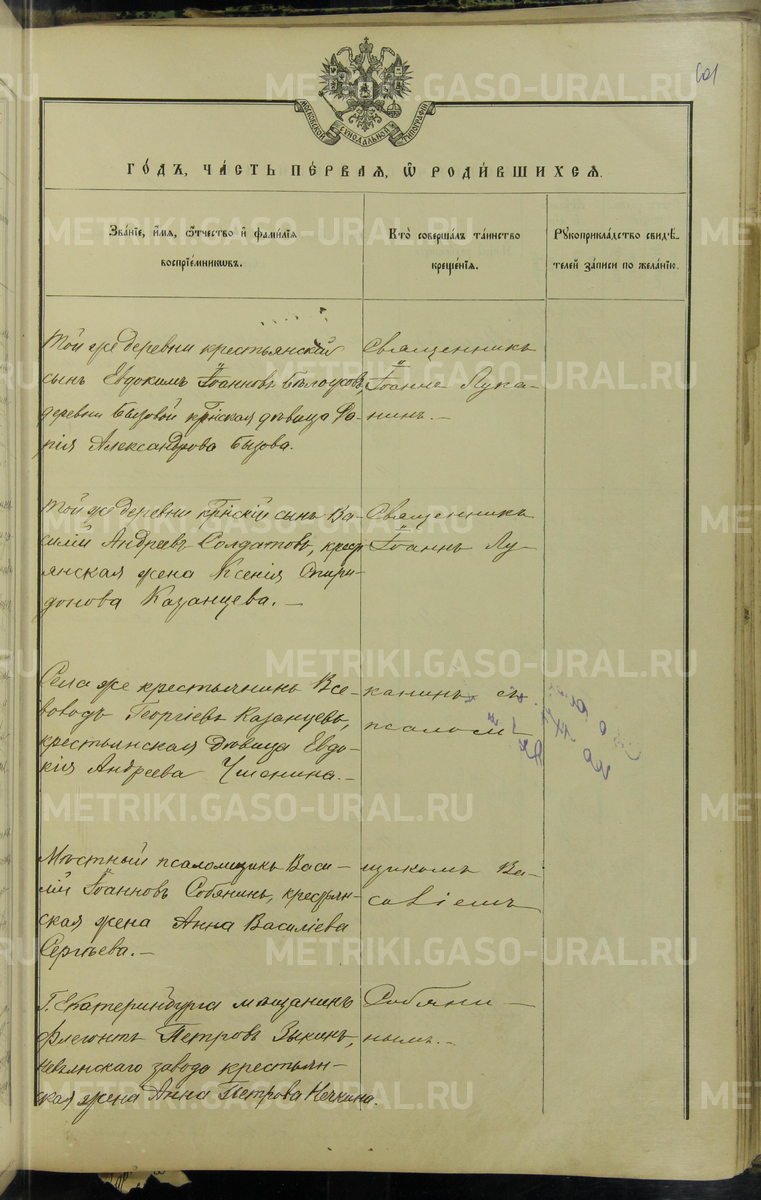 601
МОСКОВСКОЙ СѴНОДАЛЬНОЙ ТИПОГРАФІИ
ГО́ДЪ, ЧА́СТЬ ПЕ́РВАЯ, Ѽ РОДИ́ВШИХСЯ.
Зва́нїе, и́мя, ѻ́тчество и҆ фами́лїя
воспрїе́мникѡвъ.
Кто̀ соверша́лъ та́инство
креще́нїя.
Рꙋкоприкла́дство свидѣ́-
телей за́писи по жела́нїю.
Той же деревни крестьянскій
сынъ Евдокимъ Іоанновъ
деревни Бызовой кр̃нская дѣвица Ма-
рія Александрова Бызова.
Священникъ
Іоанне Лука-
нинъ.—
Той же деревни кр̃нскій сынъ Ва-
силій Андреевъ Солдатовъ, крест
янская жена Ксенія Спири-
донова Казанцева.—
Священникъ
Іоаннъ Лу-
Села же крестьянинъ Все-
володъ Георгіевъ Казанцевъ,
крестьянская дѣвица Евдо-
кія Андреева
канинъ съ
псалом
Мѣстный псаломщикъ Васи-
лій Іоанновъ Собянинъ, крестьян-
ская жена Анна Василіева
Сергѣева.—
щикомъ Ва-
силіемъ
Г. Екатеринбурга мѣщанинъ
Флегонтъ Петровъ Зыкинъ,
Невьянскаго завода крестьян-
ская жена Анна Петрова
Собяни—
нымъ.—
METRIKI.GASO-URAL.RU